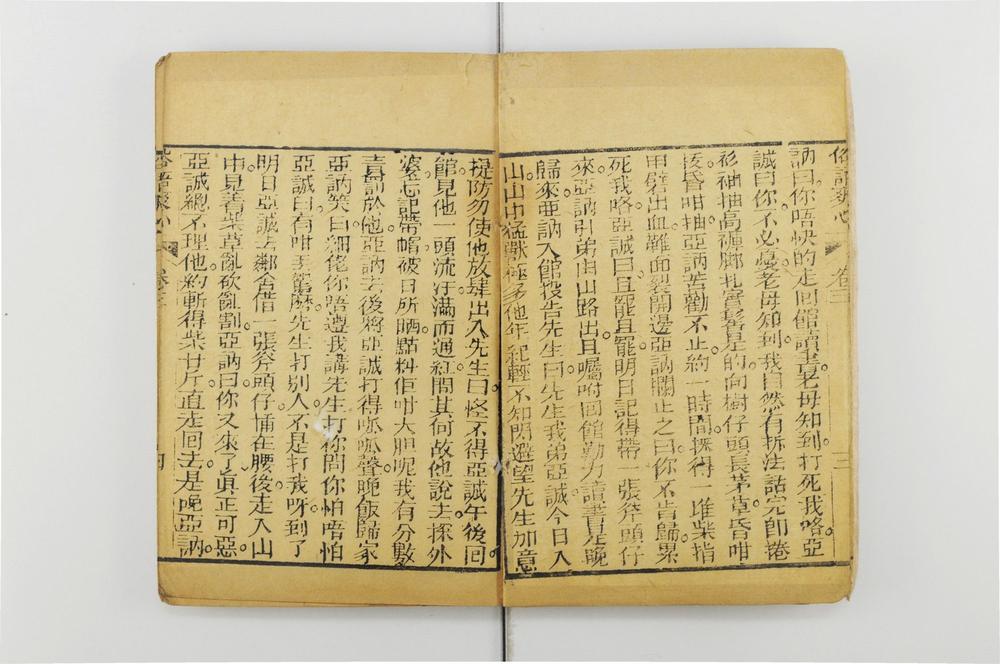 俗話爽心 卷三 三
訥曰。你唔快的走回館讀書。老母知到。打死我咯。亞
誠曰。你不必憂。老母知到。我自然有拆法。話完即捲
衫袖。抽高褲脚。扎實髻。是的向樹仔頭長茅草。昏咁
拔。昏咁抽。亞訥苦勸不止。約一時間。揼得一堆柴。指
甲劈出血。鞋面裂開邊。亞訥攔止之曰。你不肯歸。累
死我咯。亞誠曰。且罷且罷。明日記得帶一張斧頭仔
來。亞訥引弟由山路出。且囑咐回館勤力讀書。是晚
歸來。亞訥入館投告先生曰。先生我弟亞誠。今日入
山。山中猛獸極多。他年紀輕。不知閃避。望先生加意
提防。勿使他放肆出入。先生曰。怪不得亞誠午後回
館。見他一頭流汗。滿面通紅。問其何故。他說去探外
婆。忘記帶帽。被日所晒。點料佢咁大胆呢。我有分數
責罰於他。亞訥去後。將亞誠打得呱呱聲。晚飯歸家。
亞訥笑曰。細佬。你唔遵我講。先生打你。問你怕唔怕。
亞誠曰。有咁丟駕麼。先生打別人。不是打我呀。到了
明日。亞誠去鄰舍借一張斧頭仔。插在腰後。走入山
中。見着柴草。亂砍亂割。亞訥曰。你又來了。真正可惡。
亞誠總不理他。約斬得柴廿斤。直走回去。是晚亞訥
俗話爽心 卷三 四